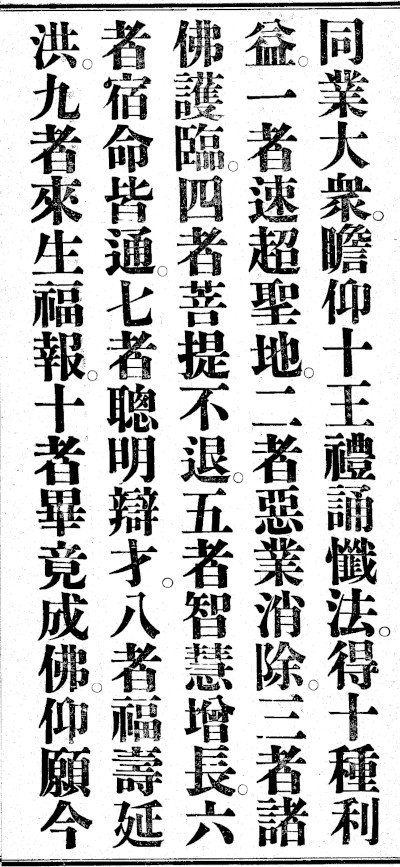 同業大衆。瞻仰十王禮誦懺法。得十種利
益。一者速超聖地。二者惡業消除。三者諸
佛護臨。四者菩提不退。五者智慧增長。六
者宿命皆通。七者聰明辯才。八者福壽延
洪。九者來生福報。十者畢竟成佛。仰願今